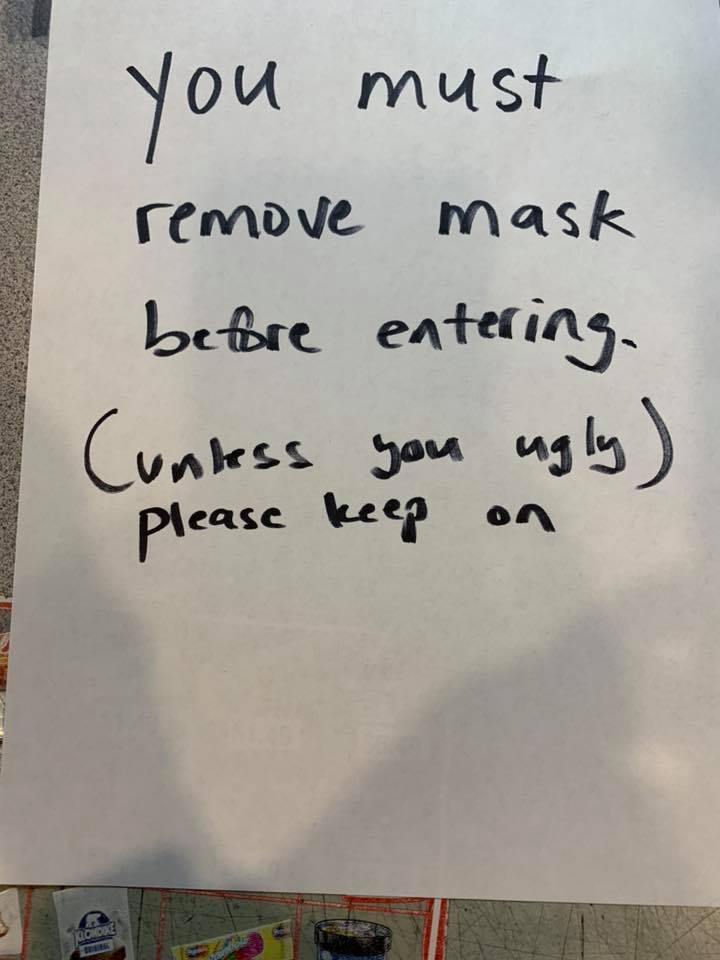 You must
remove mask
before entering.
(unless you ugly)
please keep on
KLONDIKE
ORIGINAL